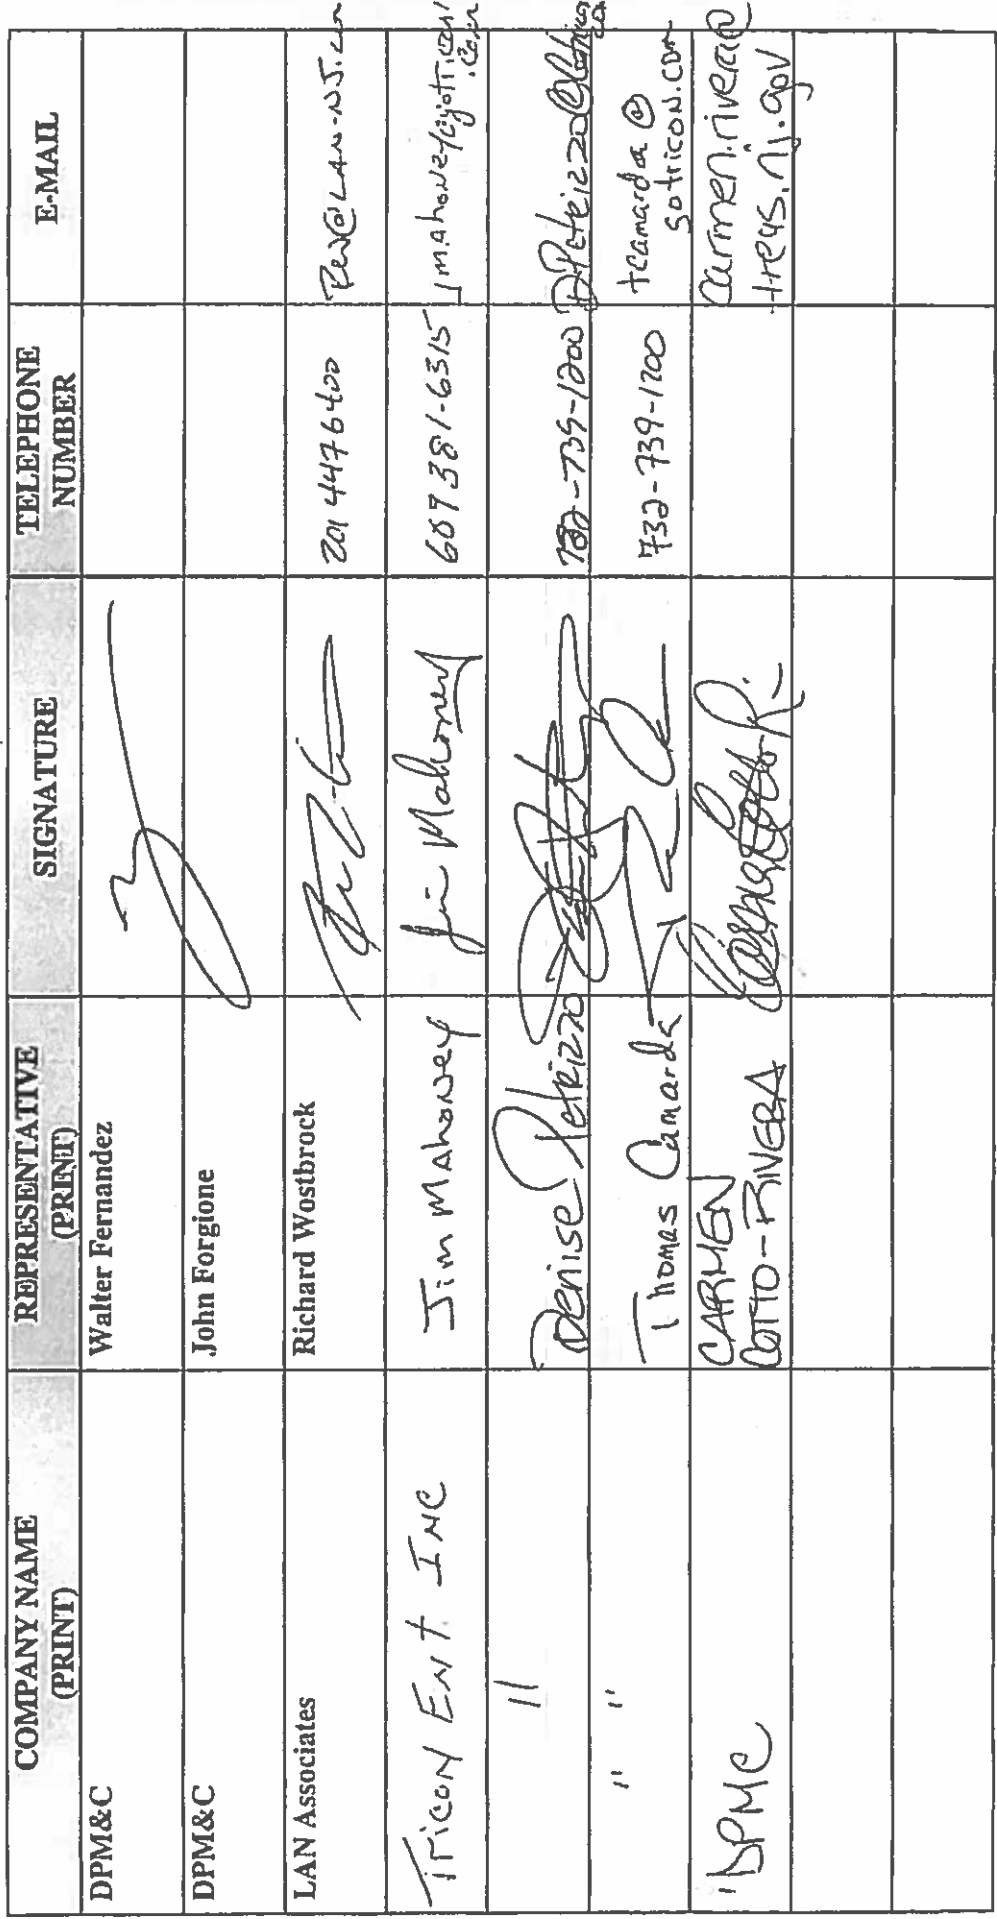 COMPANY NAME (PRINT) REPRESENTATIVE (PRINT) SIGNATURE TELEPHONE NUMBER E-MAIL
DPM&C Walter Fernandez
DPM&C John Forgione
LAN Associates Richard Wostbrock 201 4476400 REW@LAN-NJ.com
Tricon Ent. Inc Jim Mahoney Jim Mahoney 609 381-6315 jmahoney@gotricon.com
" Denise Petrizzo 732-739-1200
" " Thomas Camarda 732-739-1200 tcamarda@
gotricon.com
DPMC CARMEN carmen.rivera@
COTTO-RIVERA treas.nj.gov